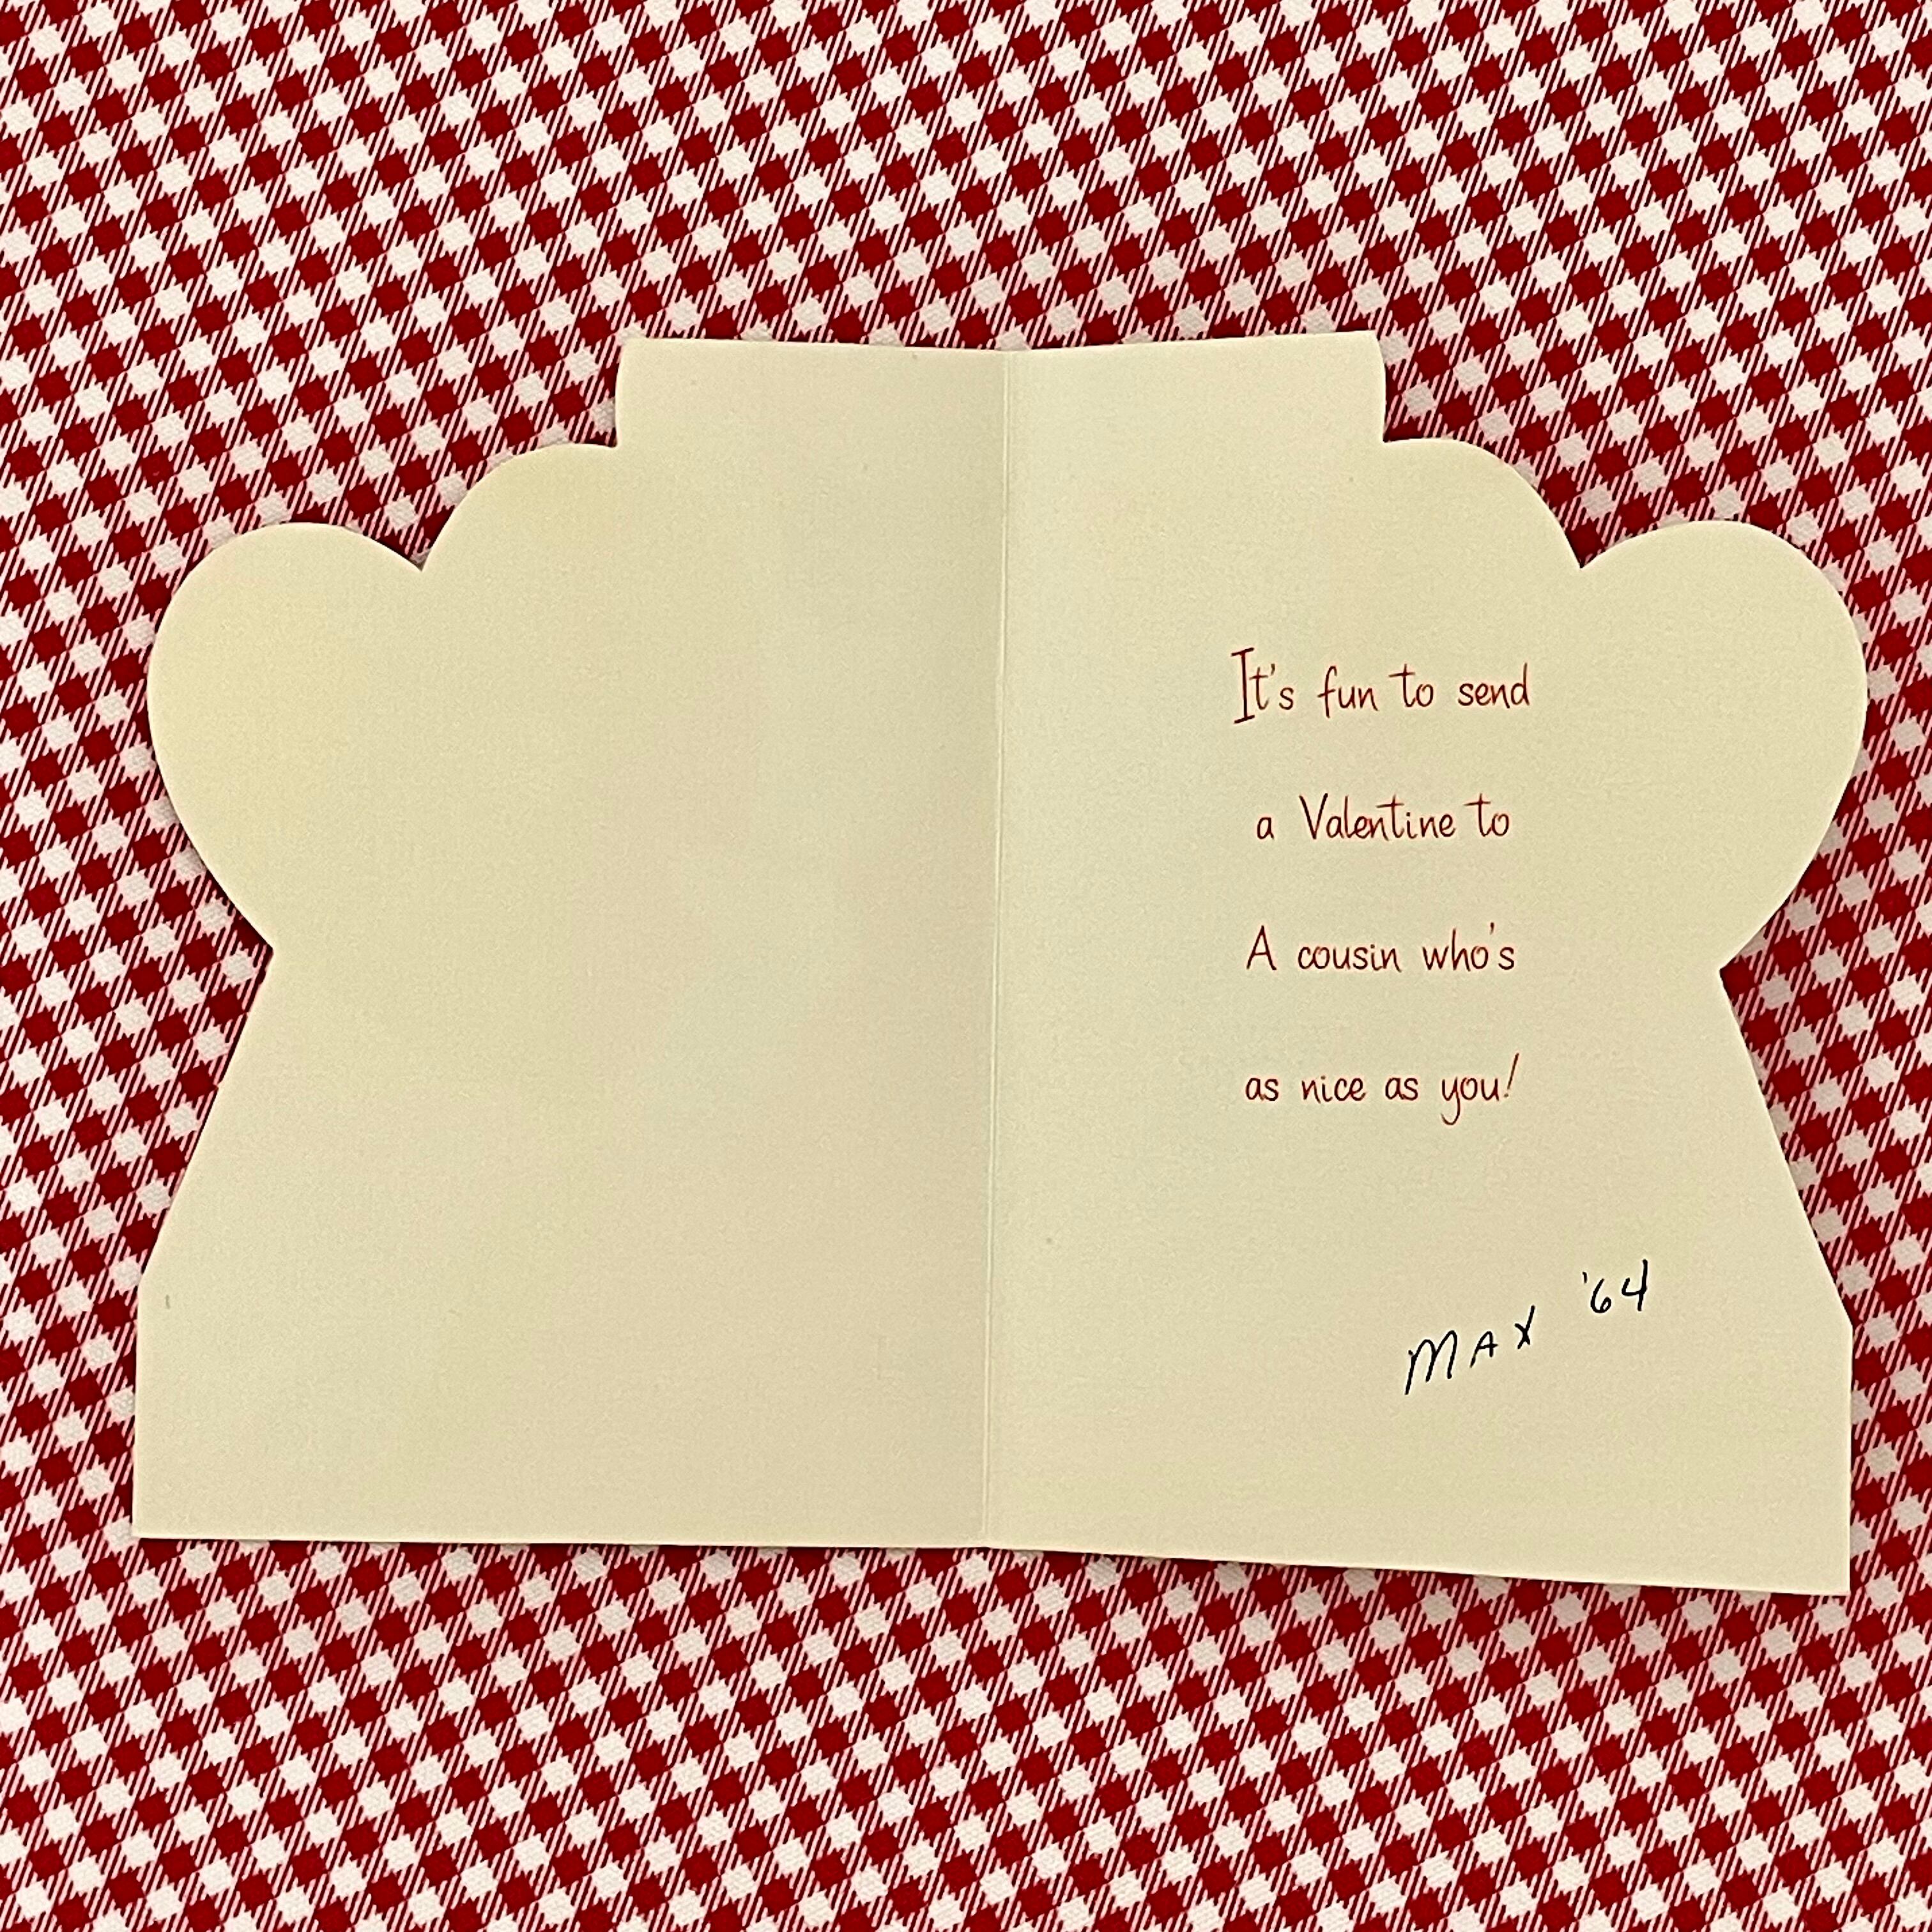 It's fun to send
a Valentine to
A cousin who's
as nice as you!
MAX '64